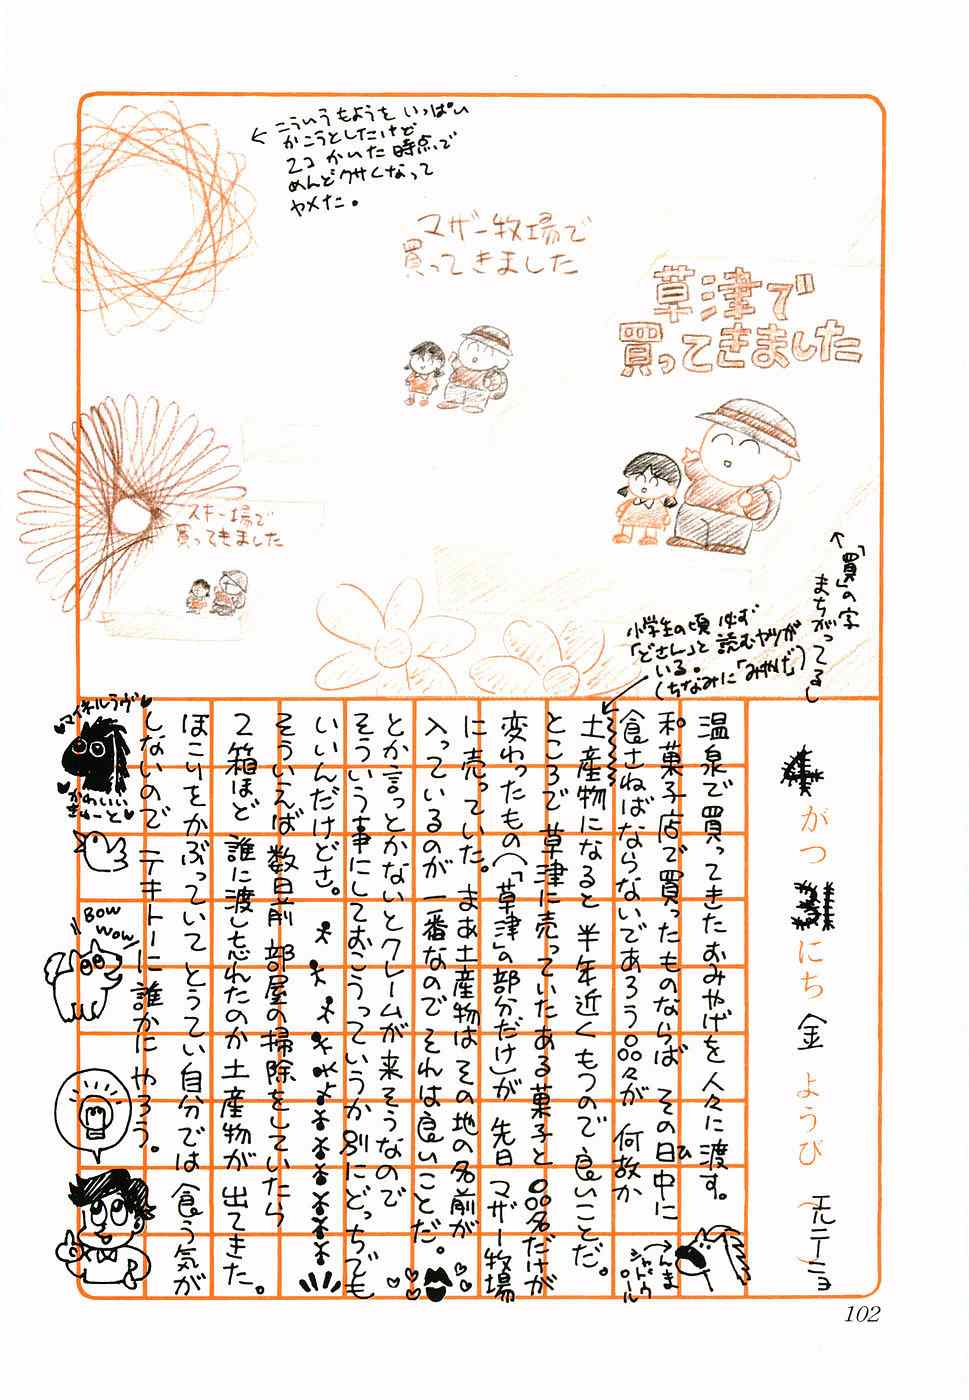 ← こういうもようを いっぱい
かこうとしたけど
2コ かいた 時点で
めんどクサくなって
ヤメた。
マザー牧場で
買ってきました
草津で
買ってきました
スキー場で
買ってきました
↑「買」の字
まちがってるし
小学生の頃 必ず
「どさん」と 読むヤツが
いる。
(ちなみに「みやげ」)
がつ にち 金 ようび
温泉で買ってきたおみやげを人々に渡す。
和菓子店で買ったものならば その日中に
食さねばならないであろう品々が 何故か
土産物になると 半年近くもつので 良いことだ。
ところで 草津に売っていたある菓子と 品名だけが
変わったもの(「草津」の部分だけ)が 先日 マザー牧場
に売っていた。まあ土産物は その地の名前が
入っているのが 一番なので それは良いことだ。
とか言っとかないとクレームが来そうなので
そういう事にしておこうっていうか別にどっちでも
いいんだけどさ。
そういえば 数日前 部屋の掃除をしていたら
2箱ほど 誰に渡し忘れたのか 土産物が 出てきた。
ほこりをかぶっていて とうてい自分では 食う気が
しないので テキトーに誰かに やろう。
マイネルラヴ
かわいい
きゅーと
BOW
WOW
102